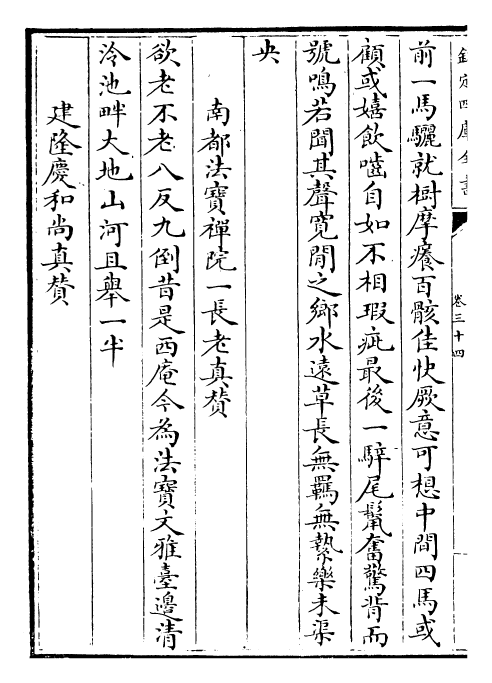 欽定四庫全書
卷三十四
前一馬驪就樹摩癢百骸佳快厥意可想中間四馬或
顧或嬉飲噛自如不相瑕疵最後一騂尾鬛奮驚背而
號鳴若聞其聲寛閒之鄉水遠草長無羈無縶樂未渠
央
南都法寶禪院一長老真贊
欲老不老八反九倒昔是西庵今為法寶文雅臺邊清
泠池畔大地山河且舉一半
建隆慶和尚真贊